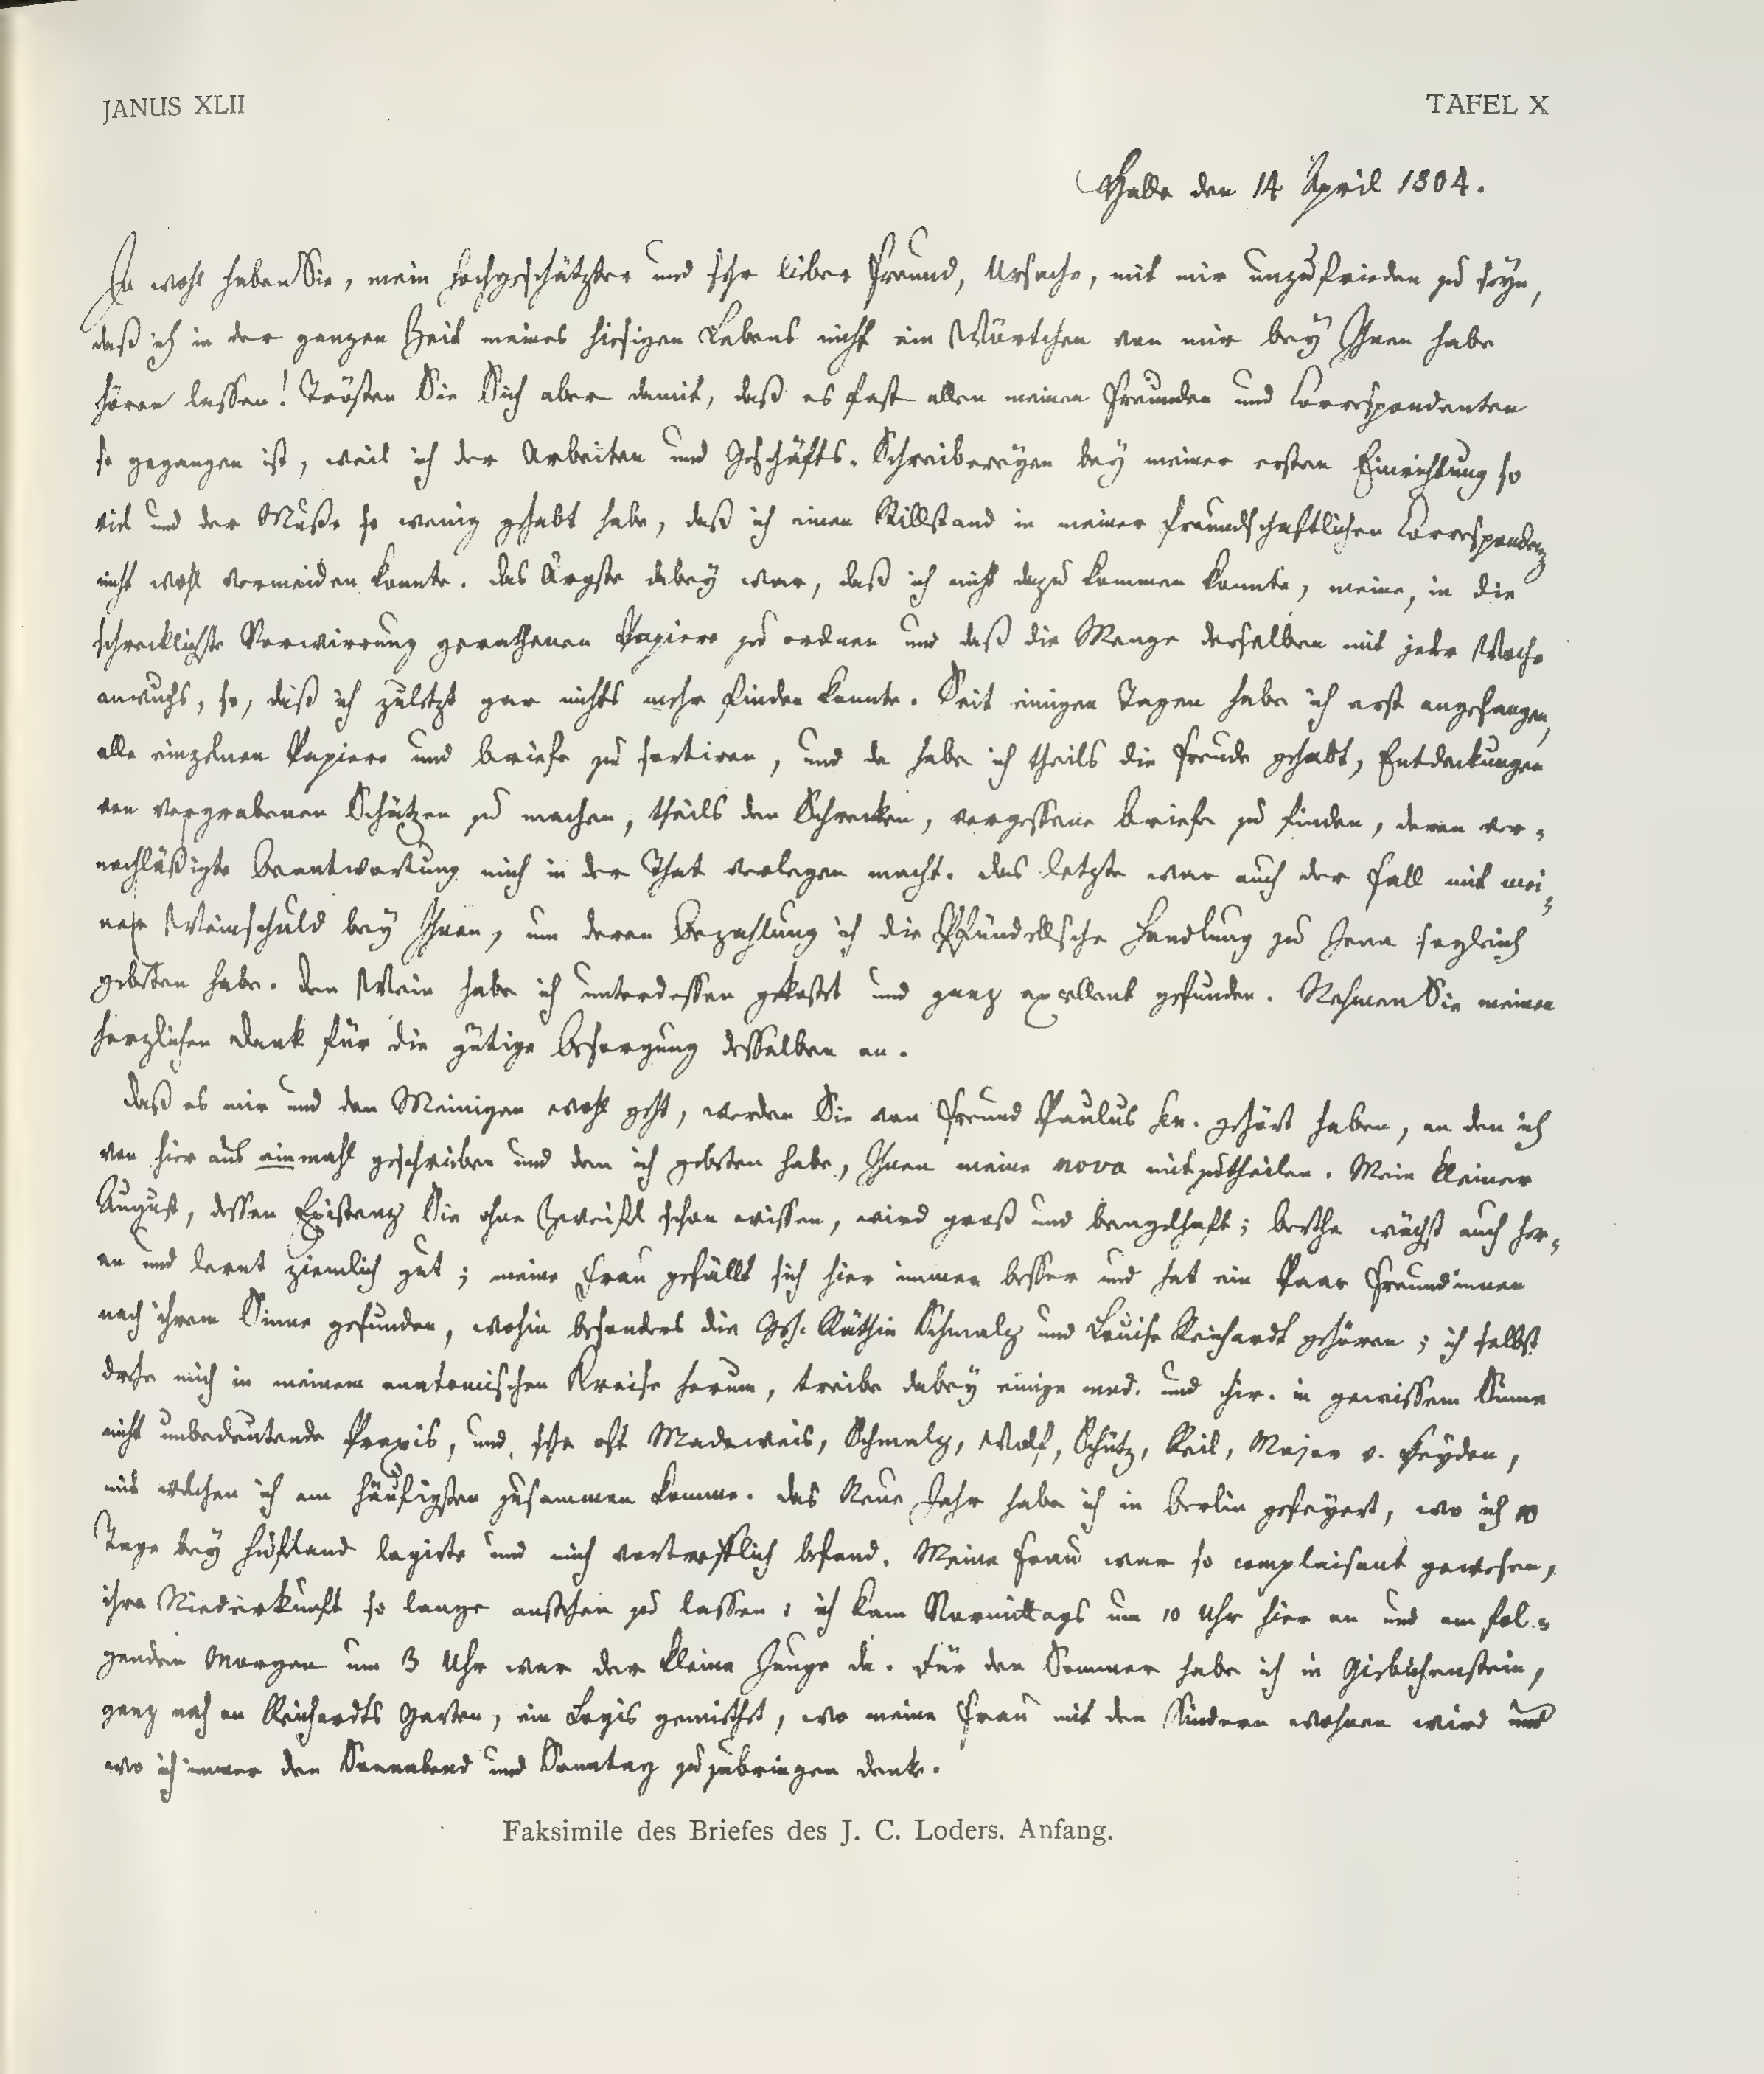 JANUS XLII
TAFEL X
Halle den 14 April 1804.
Ja wohl haben Sie, mein hochgeschätzter und sehr lieber Freund, Ursache, mit mir unzufrieden zu seyn,
daß ich in der ganzen Zeit meines hiesigen Lebens nicht ein Wörtchen von mir bey Ihnen habe
hören lassen! Trösten Sie Sich aber damit, daß es fast allen meinen Freunden und Correspondenten
so gegangen ist, weil ich der Arbeiten und Geschäfts-Schreibereyen bey meiner ersten Einrichtung so
viel und der Muße so wenig gehabt habe, daß ich einen Stillstand in meiner freundschaftlichen Correspondenz
nicht wohl vermeiden konnte. Das Ärgste dabey war, daß ich nicht dazu kommen konnte, meine, in die
schrecklichste Verwirrung gerathenen Papiere zu ordnen und daß die Menge derselben mit jeder Woche
anwuchs, so, daß ich zuletzt gar nichts mehr finden konnte. Seit einigen Tagen habe ich erst angefangen,
alle einzelnen Papiere und Briefe zu sortiren, und da habe ich theils die Freude gehabt, Entdeckungen
von vergrabenen Schätzen zu machen, theils den Schrecken, vergessene Briefe zu finden, deren ver-
nachläßigte Beantwortung mich in der That verlegen macht. Das letzte war auch der Fall mit mei-
ner Weinschuld bey Ihnen, um deren Bezahlung ich die Handlung zu Jena sogleich
gebeten habe. Den Wein habe ich unterdessen gekostet und ganz excellent gefunden. Nehmen Sie meinen
herzlichen Dank für die gütige Besorgung desselben an.
Daß es mir und den Meinigen wohl geht, werden Sie von Freund Paulus gehört haben, an den ich
von hier aus einmahl geschrieben und dem ich gebeten habe, Ihnen meine nova mitzutheilen. Mein kleiner
August, dessen Existenz Sie ohne Zweifel schon wissen, wird groß und bengelhaft; Berthe wächst auch her-
an und lernt ziemlich gut; meine Frau gefällt sich hier immer besser und hat ein Paar Freundinnen
nach ihrem Sinne gefunden, wohin besonders die Geh. Räthin Schmalz und Louise Reichardt gehören; ich selbst
drehe mich in meinem anatomischen Kreise herum, treibe dabey einige med. und chir. in gewissem Sinne
nicht unbedeutende Praxis, und sehe oft Madeweis, Schmalz, Wolf, Schütz, Reil, Major v. Heyden,
mit welchen ich am häufigsten zusammen komme. Das Neue Jahr habe ich in Berlin gefeyert, wo ich 10
Tage bey Hufland logirte und mich vortrefflich befand. Meine Frau war so complaisant gewesen,
ihre Niederkunft so lange anstehen zu lassen: ich kam Vormittags um 10 Uhr hier an und am fol-
genden Morgen um 3 Uhr war der kleine Junge da. Für den Sommer habe ich in Giebichenstein,
ganz nah an Reichardts Garten, ein Logis gemiethet, wo meine Frau mit den Kindern wohnen wird und
wo ich immer den Sonnabend und Sonntag zuzubringen denke.
Faksimile des Briefes des J. C. Loders. Anfang.